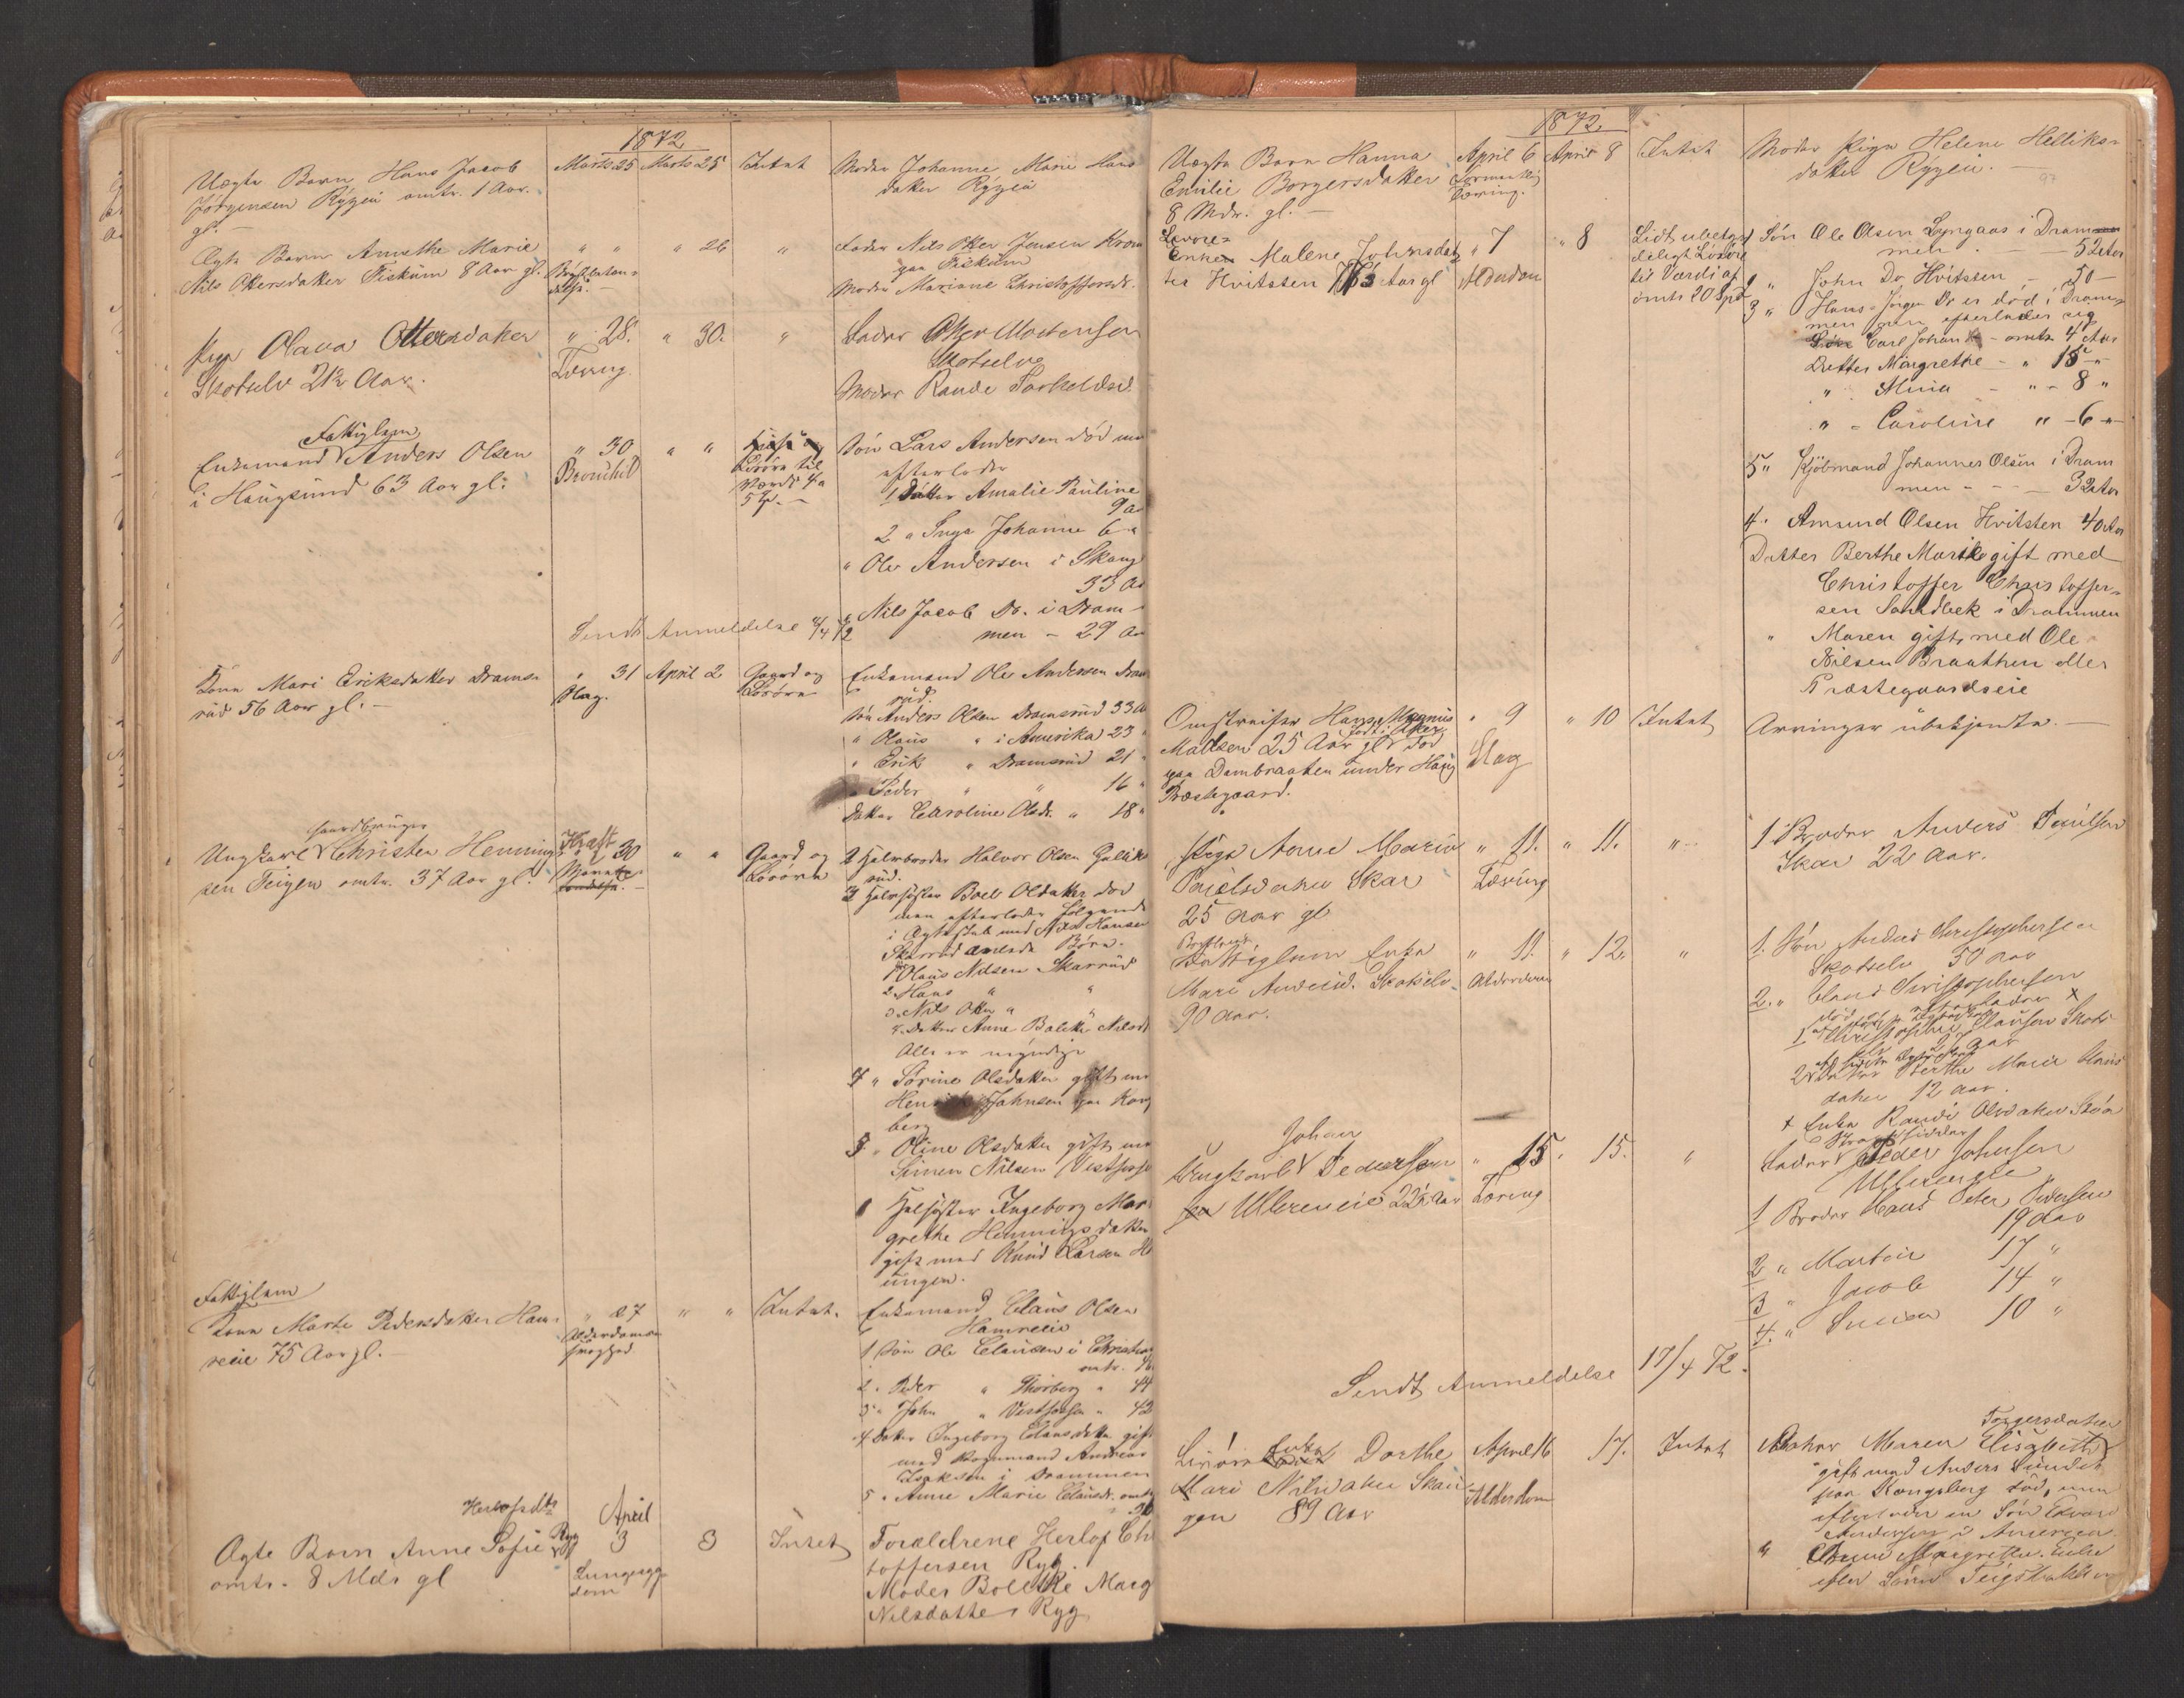 1872
Uægte Barn Hans Jacob
Jørgensen Rygeie omtr. 1 Aar.
gl.
Marts 25
Marts 25
Intet
Moder Johanne Marie Hans
datter Rygeie
Ægte Barn Annethe Marie
Nils Ottersdatter Fiskum 8 Aar gl.
" "
" 26
"
Fader Nils Otter Jensen Krom
gaa Fiskum
Moder Mariane Christoffersdr.
Pige Olava Ottersdatter
Skotselv 21½ Aar.
" 28.
Tæring
" 30.
"
Fader Otter Mortensen
Skotselv
Moder Rande Torkeldsd.
Fattiglem
Enkemand Anders Olsen
i Haugsund 63 Aar gl.
" 30
Bronchit
" "
Løsøre til
Værdi 4 a
5 Sp. -
Søn Lars Andersen død men
efterlader
1 Datter Amalie Pauline
9 Aar
2 " Inga Johanne 6 "
" Ole Andersen i Skoug
33 Aa
Nils Jacob Do. i Dram
men - 29 Aa
Sendt Anmeldelse 4/4 72
Kone Mari Eriksdatter Drams
rud 56 Aar gl. -
" 31
Slag.
April 2
Gaard og
Løsøre
Enkemand Ole Andersen Dram
rud.
Søn Anders Olsen Dramsrud 33 Aa
" Olaus " i Amerika 23 "
" Erik " Dramsrud 21 "
" Peder " " 16 "
Datter Caroline Olsdr. " 18 "
Gaardbruger
Ungkarl Christen Hennings
sen Teigen omtr. 37 Aar gl.
30
" "
Gaard og
Løsøre
2 Halvbroder Halvor Olsen
rud.
3 Halvsøster Boel Olsdatter død
men efterlader følgende
i Ægteskab med Nils Hansen
Skarrud avlede Børn.
1 Olaus Nilsen Skarrud
2. Hans " "
3. Nils Otter " "
4. Datter Anne Bolette Nilsdr
Alle er myndige
4 " Sørine Olsdatter gift me
Henrik Johnsen paa Kong
berg
5. " Oline Olsdatter gift me
Simen Nilsen Vestfosse
1 Helsøster Ingeborg Mar
grethe Henningsdatter
gift med Knud Larsen H
ungen.
Fattiglem
Kone Marte Pedersdatter Ham
reeie 75 Aar gl.
" 27
Alderdoms
svaghed
" "
Intet.
Enkemand Claus Olsen
Hamreeie
1 Søn Ole Clausen i Christia
omtr. 46
2 " Peder " Thorberg " 44
3 " John " Vestfossen " 42
4 Datter Ingeborg Clausdatter gift
med Bogmand Andreas
Isaksen i Drammen
5 " Anne Marie Clausdr. omtr
Herlofsdtr
Ægte Barn Anne Sofie Ryg
omtr. 8 Mdr gl
April
3
Lungesyg
dom
3
Intet
Forældrene Herlof Chr
toffersen Ryg.
Moder Bolette Marg
Nilsdatter Ryg
1872.
Uægte Barn Hanna
Emilie Borgersdatter
8 Mdr. gl. -
April 6
Formentlig
Tæring.
April 8
Intet
Moder Pige Helene Helliks
datter Rygeie. -
97
Levøre-
Enke Malene Johnsdat
ter Hvitsten 76 Aar gl
" 7
Alderdom
" 8
Lidt ubetyd
deligt Løsøre
til Værdi af
omtr 20 Spd
Søn Ole Olsen Lyngaas i Dram
men. - 52 Aar
" John Do Hvitsten - 50 -
3 " Hans Jørgen Do er død i Dram
men men efterlader sig
Søn Carl Johan - omtr 4 Aar
Datter Margrethe - " 15 "
" Mina - " - 8 "
" - Caroline " - 6 "
5 " Kjøbmand Johannes Olsen i Dram
men - - - 32 Aar
4. Amund Olsen Hvitsten 40 Aar
Datter Berthe Marie gift med
Christoffer Christoffer-
sen Sandbek i Drammen
" Maren gift med Ole
Nilsen Braathen eller
Præstegaardseie
Omstreifer Hans Magnus
født i Aker
Madsen 25 Aar gl død
paa Dambraaten under Haug
Præstegaard.
" 9
Slag
" 10
Intet
Arvinger ubekjendte. -
Pige Anne Marie
Paulsdatter Skar
25 Aar gl
" 11.
Tæring
" 11.
" -
1 Broder Anders Paulsen
Skar 22 Aar.
Fattiglem Enke
Mari Andersd. Skotselv
90 Aar.
" 11.
Alderdom
" 12.
"
1. Søn Anders Christophersen
Skotselv 50 Aar
2. " Claus Christophersen
død efterlader x
1 Christopher Clausen Skots
elv Aar
2 Datter Berthe Marie Claus
datter 12 Aar.
x Enke Randi Olsdatter
Johan
Ungkarl Pedersen
Ullereneie 22½ Aar
" 15.
Tæring
15.
"
Strandsidder
Fader Peder Johnsen
Ullereneie
1 Broder Hans Peter Pedersen
19 Aar
2 " Martin 17 "
3 " Jacob 14 "
4. " Simen 10 "
Sendt Anmeldelse 17/4 72.
Enke Dorthe
Mari Nilsdatter Skau
gen 89 Aar
April 16
Alderdom
17.
Intet
Torgersdatter
Datter Maren Elisabeth
gift med Anders Sundet
paa Kongsberg død, men
efterlader en Søn Edvard
Andersen i Amerika.
" Anne Margrethe. Enke
efter Søren Teigsbakken